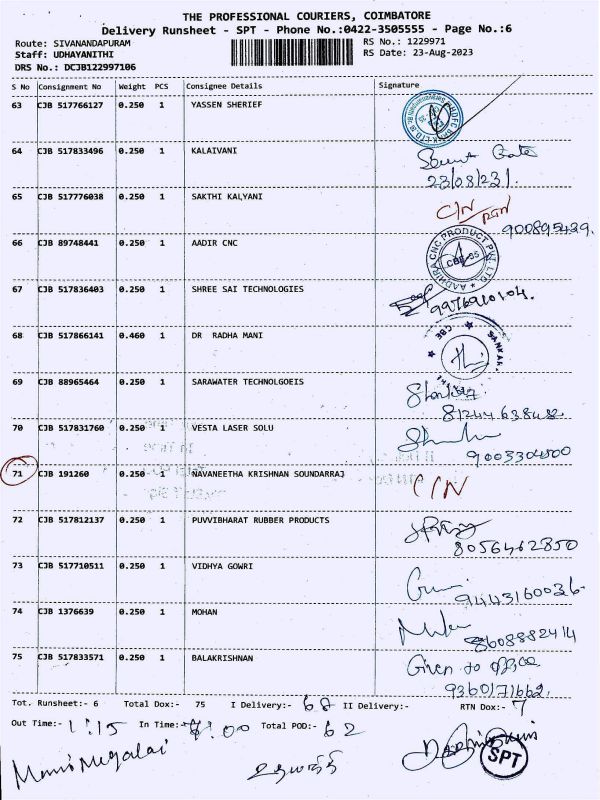 THE PROFESSIONAL COURIERS, COIMBATORE
Delivery Runsheet - SPT - Phone No.:0422-3505555 - Page No.:6
Route: SIVANANDAPURAM RS No.: 1229971
Staff: UDHAYANITHI RS Date: 23-Aug-2023
DRS No.: DCJB122997106
S No Consignment No Weight PCS Consignee Details Signature
63 CJB 517766127 0.250 1 YASSEN SHERIEF
64 CJB 517833496 0.250 1 KALAIVANI
23/08/23
65 CJB 517776038 0.250 1 SAKTHI KALYANI C/N
66 CJB 89748441 0.250 1 AADIR CNC
AADHIRA CNC PRODUCT PVT. LTD.
67 CJB 517836403 0.250 1 SHREE SAI TECHNOLOGIES
68 CJB 517866141 0.460 1 DR RADHA MANI
69 CJB 88965464 0.250 1 SARAWATER TECHNOLGOEIS
70 CJB 517831760 0.250 1 VESTA LASER SOLU
9003304500
71 CJB 191260 0.250 1 NAVANEETHA KRISHNAN SOUNDARRAJ C/N
72 CJB 517812137 0.250 1 PUVVIBHARAT RUBBER PRODUCTS
8056462850
73 CJB 517710511 0.250 1 VIDHYA GOWRI
9443160036
74 CJB 1376639 0.250 1 MOHAN
8608882414
75 CJB 517833571 0.250 1 BALAKRISHNAN Given to office
9360171662.
Tot. Runsheet:- 6 Total Dox:- 75 I Delivery:- 68 II Delivery:- RTN Dox:- 7
Out Time:- 11:15 In Time:- 7:00 Total POD:- 62
SPT